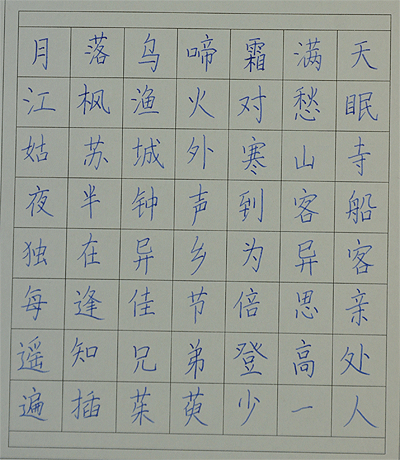 月落乌啼霜满天
江枫渔火对愁眠
姑苏城外寒山寺
夜半钟声到客船
独在异乡为异客
每逢佳节倍思亲
遥知兄弟登高处
遍插茱萸少一人